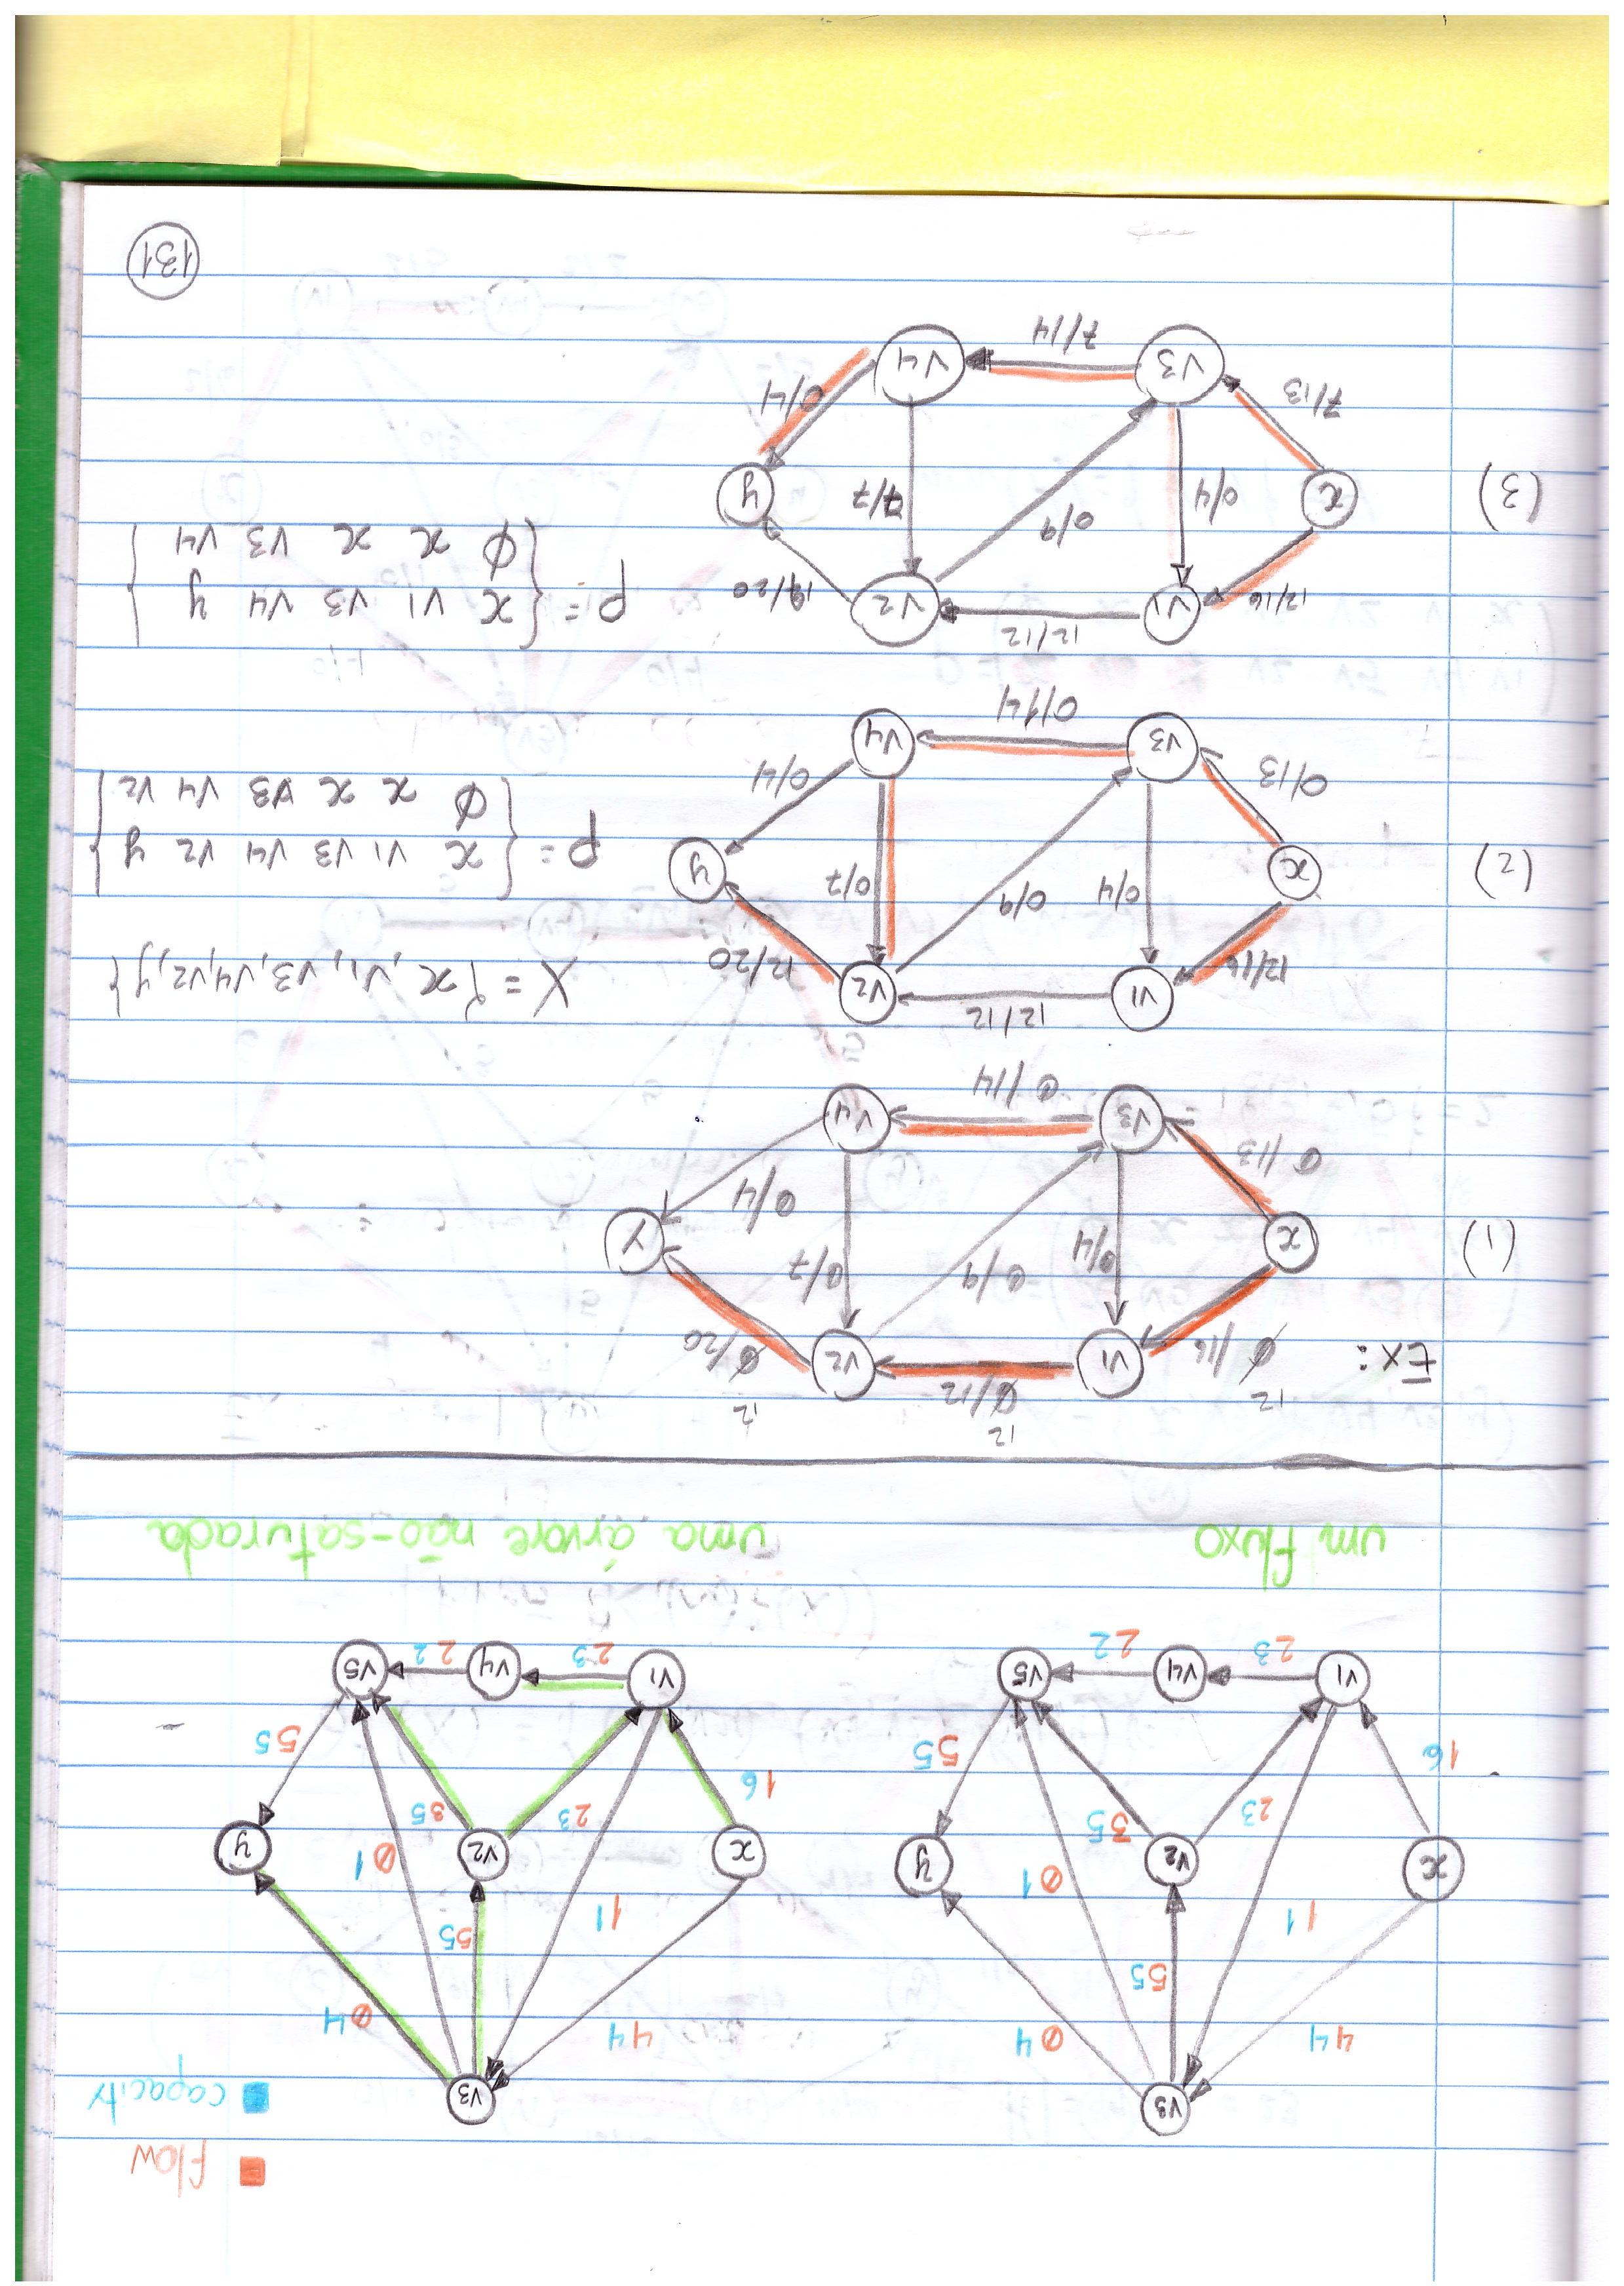 flow
capacity
v3
44
04
55
11
01
x
v2
y
23
35
16
55
v1
v4
v5
23
22
um fluxo
v3
44
04
55
11
01
x
v2
y
23
35
16
55
v1
v4
v5
23
22
uma árvore não-saturada
Ex:
(1)
12
0/16
v1
12
0/12
v2
12
0/20
x
0/4
0/9
0/7
y
0/13
v3
0/14
v4
0/4
(2)
12/16
v1
12/12
v2
12/20
x
0/4
0/9
0/7
y
0/13
v3
0/14
v4
0/4
X = {x, v1, v3, v4, v2, y}
p = { x v1 v3 v4 v2 y }
Ø x x v3 v4 v2
(3)
12/16
v1
12/12
v2
19/20
x
0/4
0/9
7/7
y
7/13
v3
7/14
v4
0/4
p = { x v1 v3 v4 y }
Ø x x v3 v4
131